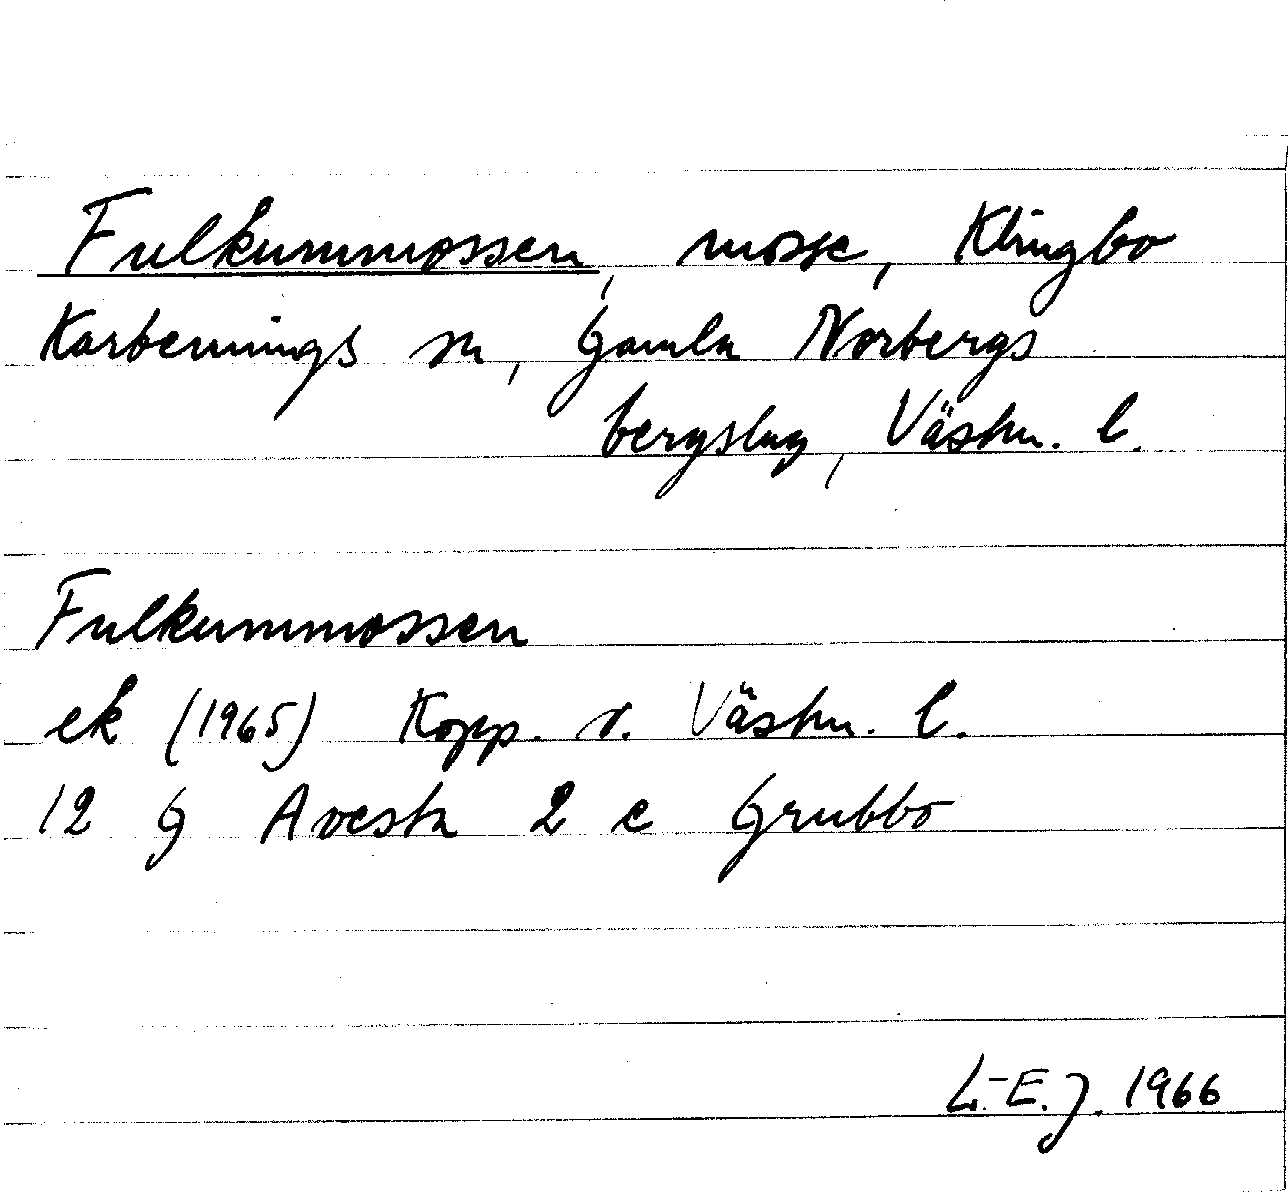 Fulkummossen, mosse, Klingbo
Karbennings sn, Gamla Norbergs
bergslag, Västm. l.
Fulkummossen
ek (1965) Kopp. o. Västm. l.
12 G Avesta 2 c Grubbo
L.-E.J. 1966